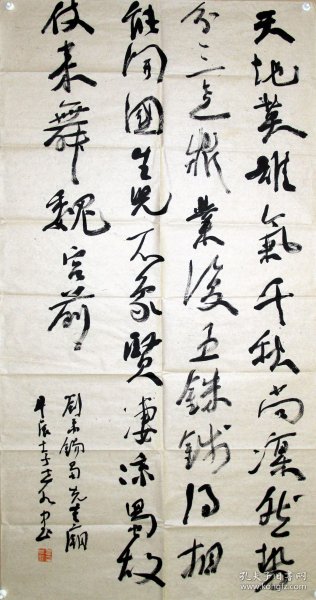 天地英雄氣千秋尚凜然勢
分三足鼎業復五銖錢得相
能開國生兒不象賢淒涼蜀故
伎来舞魏宫前
劉禹錫蜀先主廟
孔夫子旧书网
www.kongfz.com